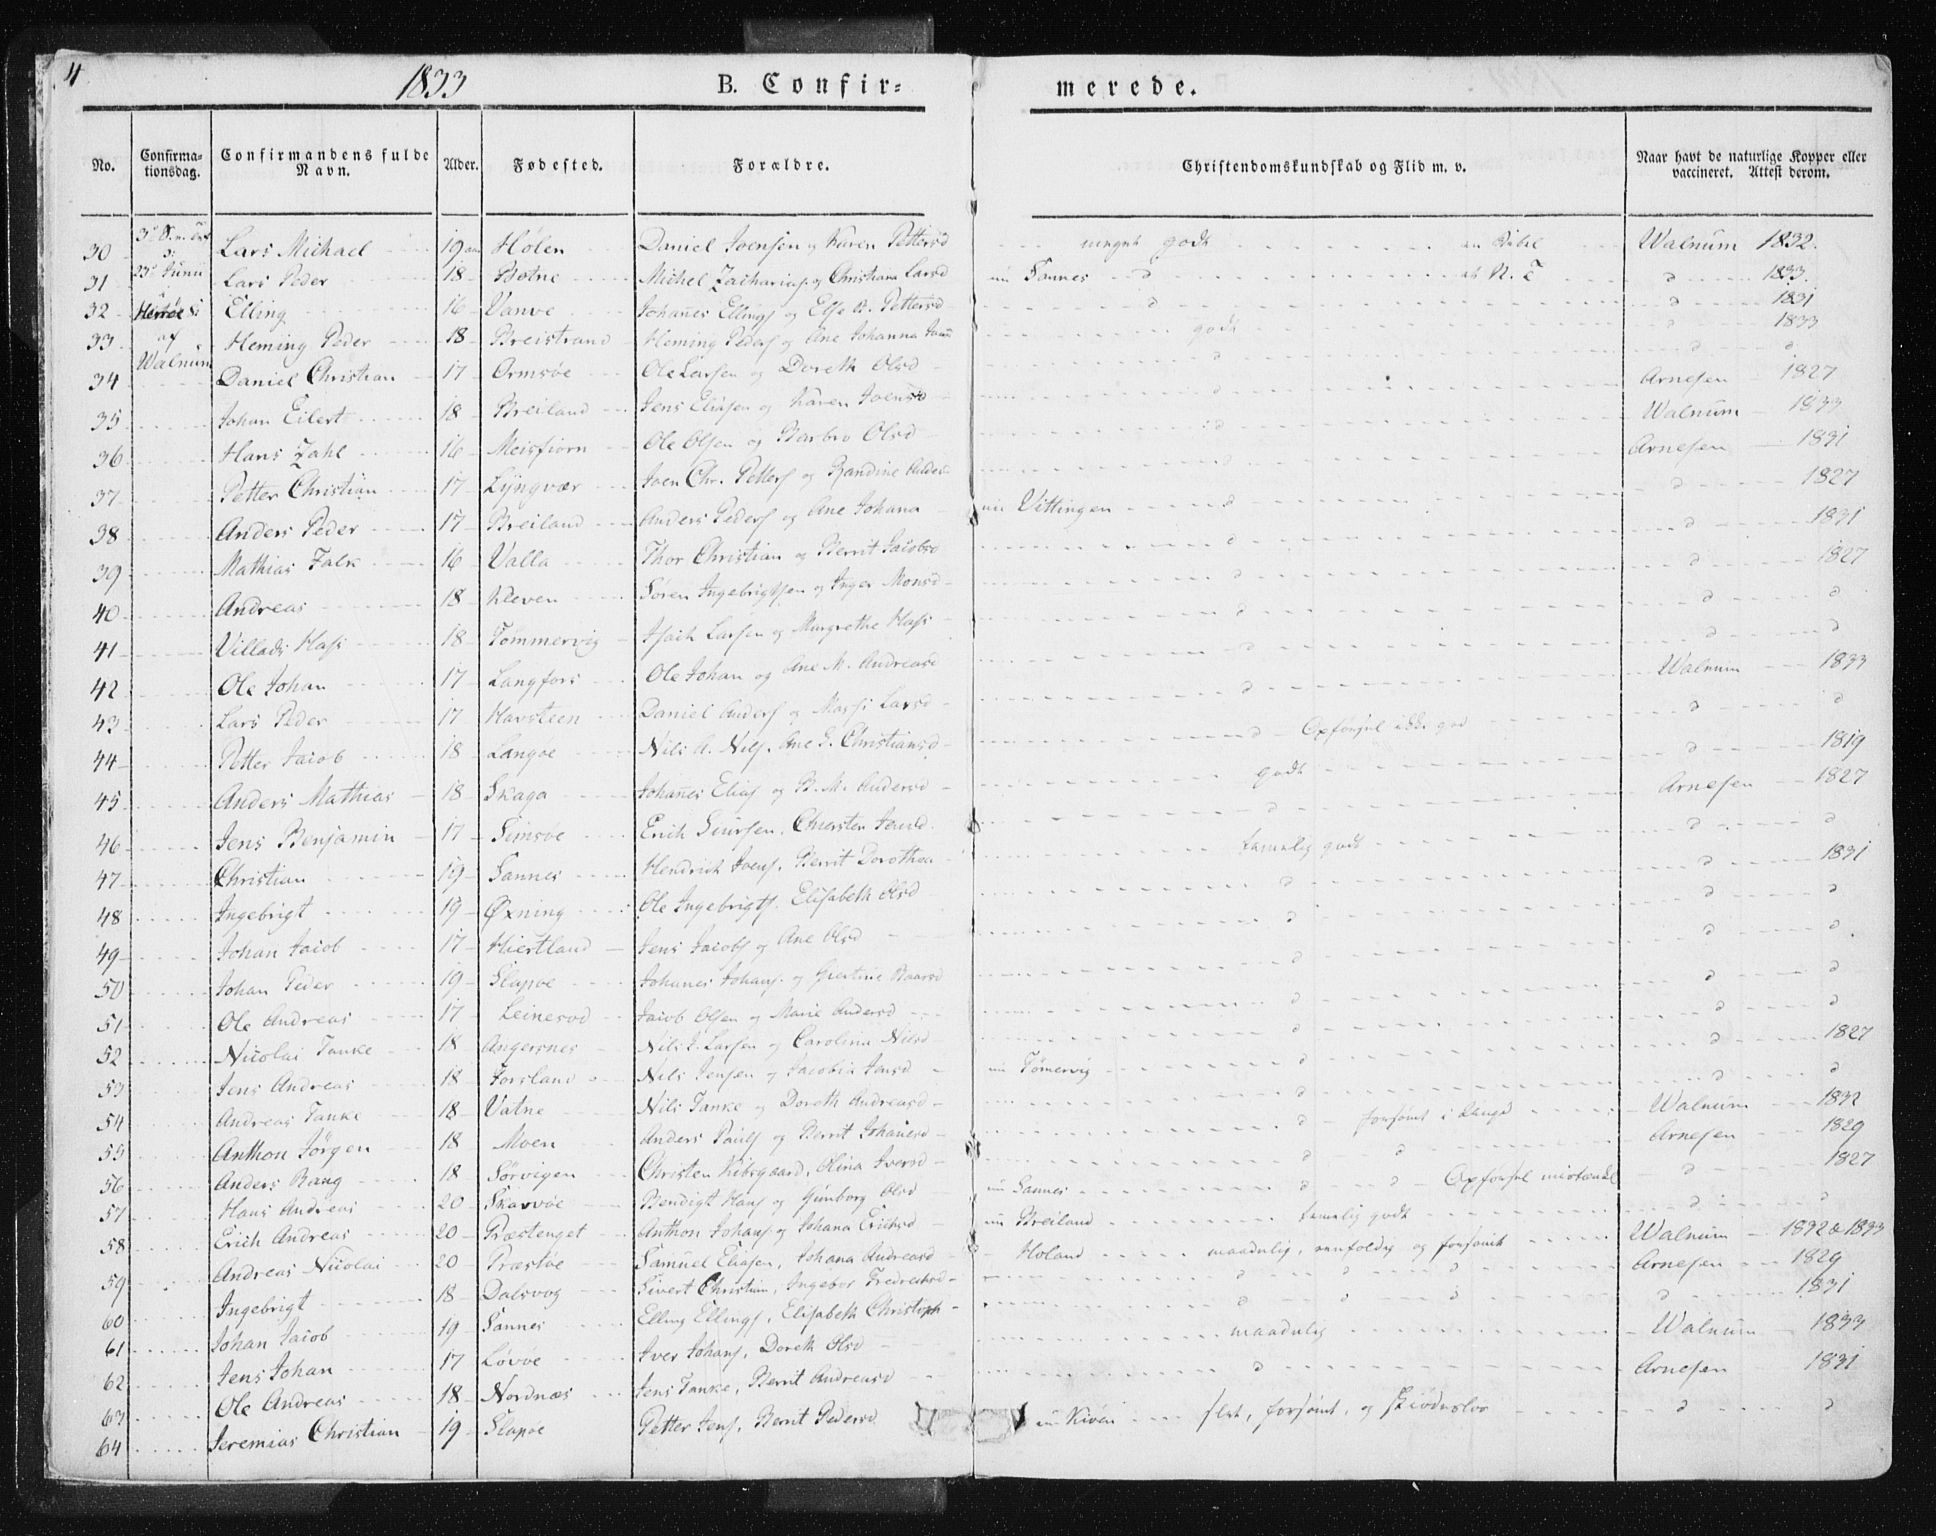 4
1833
B. Confir=
merede.
No.
Confirma-
tionsdag.
Confirmandens fulde
Navn.
Alder.
Fødested.
Forældre.
Christendomskundskab og Flid m. v.
Naar havt de naturlige Kopper eller
vaccineret. Attest derom.
23d Junii
Herrøe
af
Walnum
30 Lars Michael 19 Hølen Daniel Joensen og Karen Pettersd meget godt en Bibel Walnum 1832.
31 Lars Peder 18 Botne Michel Zacharias og Christiana Larsd nu Sannes d et N. T d 1833.
32 Elling 16 Vanve Johañes Ellings og Else Pettersd d d 1831
33 Heming Peder 18 Breistrand Heming Peders og Ane Johanna godt d 1833
34 Daniel Christian 17 Ormsøe Ole Larsen og Doreth Olsd d d d
35 Johan Eilert 18 Breiland Jens Eliasen og Karen Joensd d Arnesen 1827
36 Hans Zahl 16 Meisfiorn Ole Olsen og Barbro Olsd d Walnum 1833
37 Petter Christian 17 Lyngvær Joen Chr. Petters og Randine Arnesen 1831
38 Anders Peder 17 Breiland Anders Peders og Ane Johana nu Vittingen d d 1827
39 Mathias Falk 16 Valla Thor Christian og Berrit Jacobsd d d 1831
40 Andreas 18 Kleven Søren Ingebrigtsen og Inger Monsd d d 1827
41 Villads Hass 18 Tommervig Isach Larsen og Margrethe Hass d d
42 Ole Johan 17 Langfors Ole Johan og Ane M. Andreasd d d d
43 Lars Peder 17 Havsteen Daniel Anders og Massi Larsd d Walnum 1833
44 Petter Jacob 18 Langøe Nils A. Nils. Ane Christiansd d Opførsel ikke god d d
45 Anders Mathias 18 Skaga Johañes Elias og B. M. Andersd godt d 1819
46 Jens Benjamin 17 Simsøe Erich Siursen, Chiersten d Arnesen 1827
47 Christian 19 Sannes Hendrich Joens, Berrit Dorothea temelig godt d d
48 Ingebrigt 19 Øxning Ole Ingebrigts. Elisabeth Olsd d d 1831
49 Johan Jacob 17 Hiertland Jens Jacobs og Ane Olsd d d d
50 Johan Peder 19 Slapøe Johanes Johans. og Giertine Baarsd d
51 Ole Andreas 17 Leinesod Jacob Olsen og Marie Andersd d d d
52 Nicolai Tanke 18 Angersnes Nils Larsen og Carolina Nilsd d d d
53 Jens Andreas 18 Forsland Nils Jensen og Jacobia Jensd nu Tømervig d d 1827
54 Andreas Tanke 18 Vatne Nils Tanke og Doreth Andreasd d d d
55 Anthon Jørgen 18 Moen Anders Pauls og Berrit Johañesd d forsømt i Walnum 1832
56 Anders Bang 18 Sørvigen Christen Kibsgaard, Olina Iversd d d Arnesen 1829
57 Hans Andreas 20 Skarvøe Bendigt Hans og Gunborg Olsd nu Sannes d d Opførsel mistænkt d 1827
58 Erich Andreas 20 Præstenget Anthon Johans og Johana Erichsd nu Breiland temelig godt d d
59 Andreas Nicolai 20 Præstøe Samuel Eliasen, Johana Andreasd Høland maadelig, eenfoldig og forsømt Walnum 1832 & 1833
60 Ingebrigt 18 Dalsvog Sivert Christian, Ingebor Fredrichsd d d d Arnesen 1829
61 Johan Jacob 19 Sannes Elling Ellings, Elisabeth Christoph d d d d 1831
62 Jens Johan 17 Løvøe Iver Johans, Doreth Olsd maadelig Walnum 1833
63 Ole Andreas 18 Nordnæs Jens Tanke, Berrit Andreasd d Arnesen 1831
64 Jeremias Christian 19 Slapøe Petter Jens, Berrit Pedersd nu slet, forsømt, og skiødesløs d d